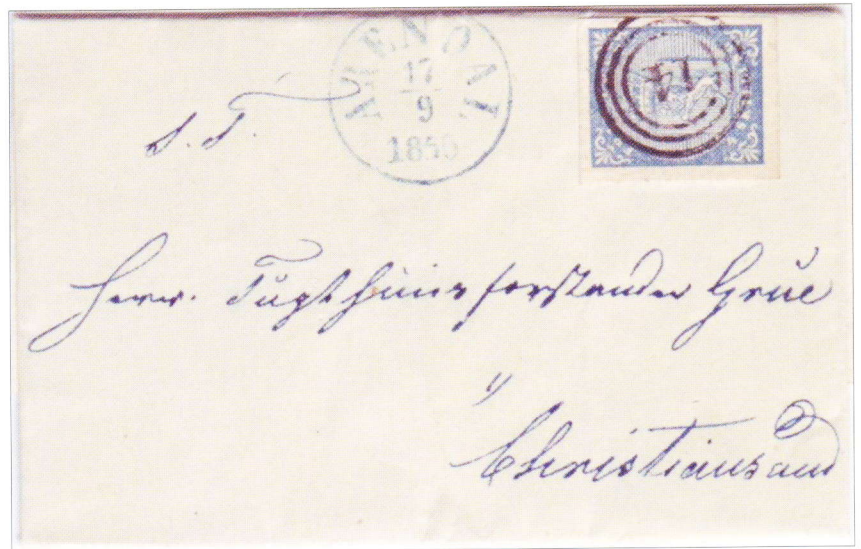 ARENDAL
17
9
1856
S. T.
Herr. Tugthuusforstander Grüe
i
Christiansand